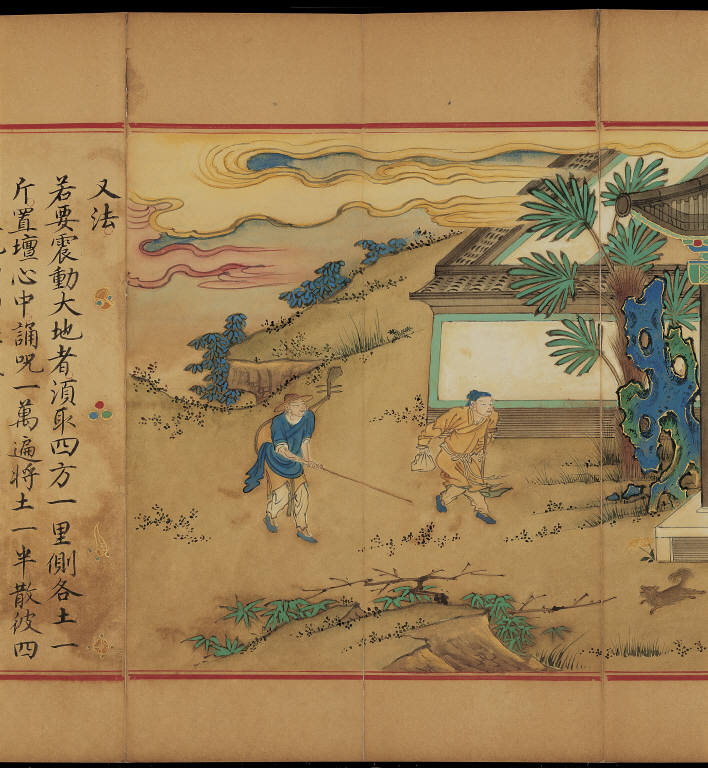 又法
若要震動大地者須取四方一里側各土一
斤置壇心中誦呪一萬遍將土一半散彼四